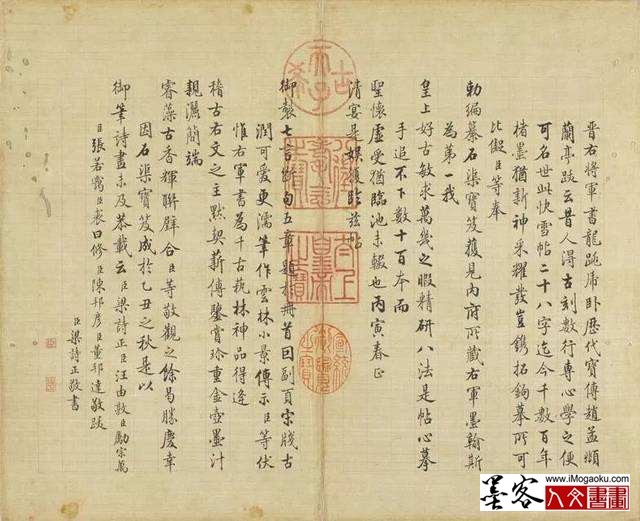 晉右將軍書龍跳虎臥歷代寶傳趙孟頫
蘭亭跋云昔人得古刻數行專心學之便
可名世此快雪帖二十八字迄今千數百年
楮墨猶新神采耀發豈鐫拓鉤摹所可
比儗臣等奉
勅編纂石渠寶笈獲見內府所藏右軍墨翰斯
為第一我
皇上好古敏求萬幾之暇精研八法是帖心摹
手追不下數十百本而
聖懷虛受猶臨池未輟也丙寅春正
清宴是娛復臨茲帖
御製七言斷句五章題於冊首因副頁宋牋古
潤可愛更濡筆作雲林小景傳示臣等伏
惟右軍書為千古藝林神品得逢
稽古右文之主默契薪傳鑒賞珍重金壺墨汁
親灑簡端
睿藻古香輝聯璧合臣等敬觀之餘曷勝慶幸
因石渠寶笈成於乙丑之秋是以
御筆詩畫未及恭載云臣梁詩正臣汪由敦臣勵宗萬
臣張若靄臣裘曰修臣陳邦彥臣董邦達敬跋
臣梁詩正敬書
古希天子
八徵耄念之寶
太上皇帝之寶
墨客
www.iMogaoku.com
人文書畫